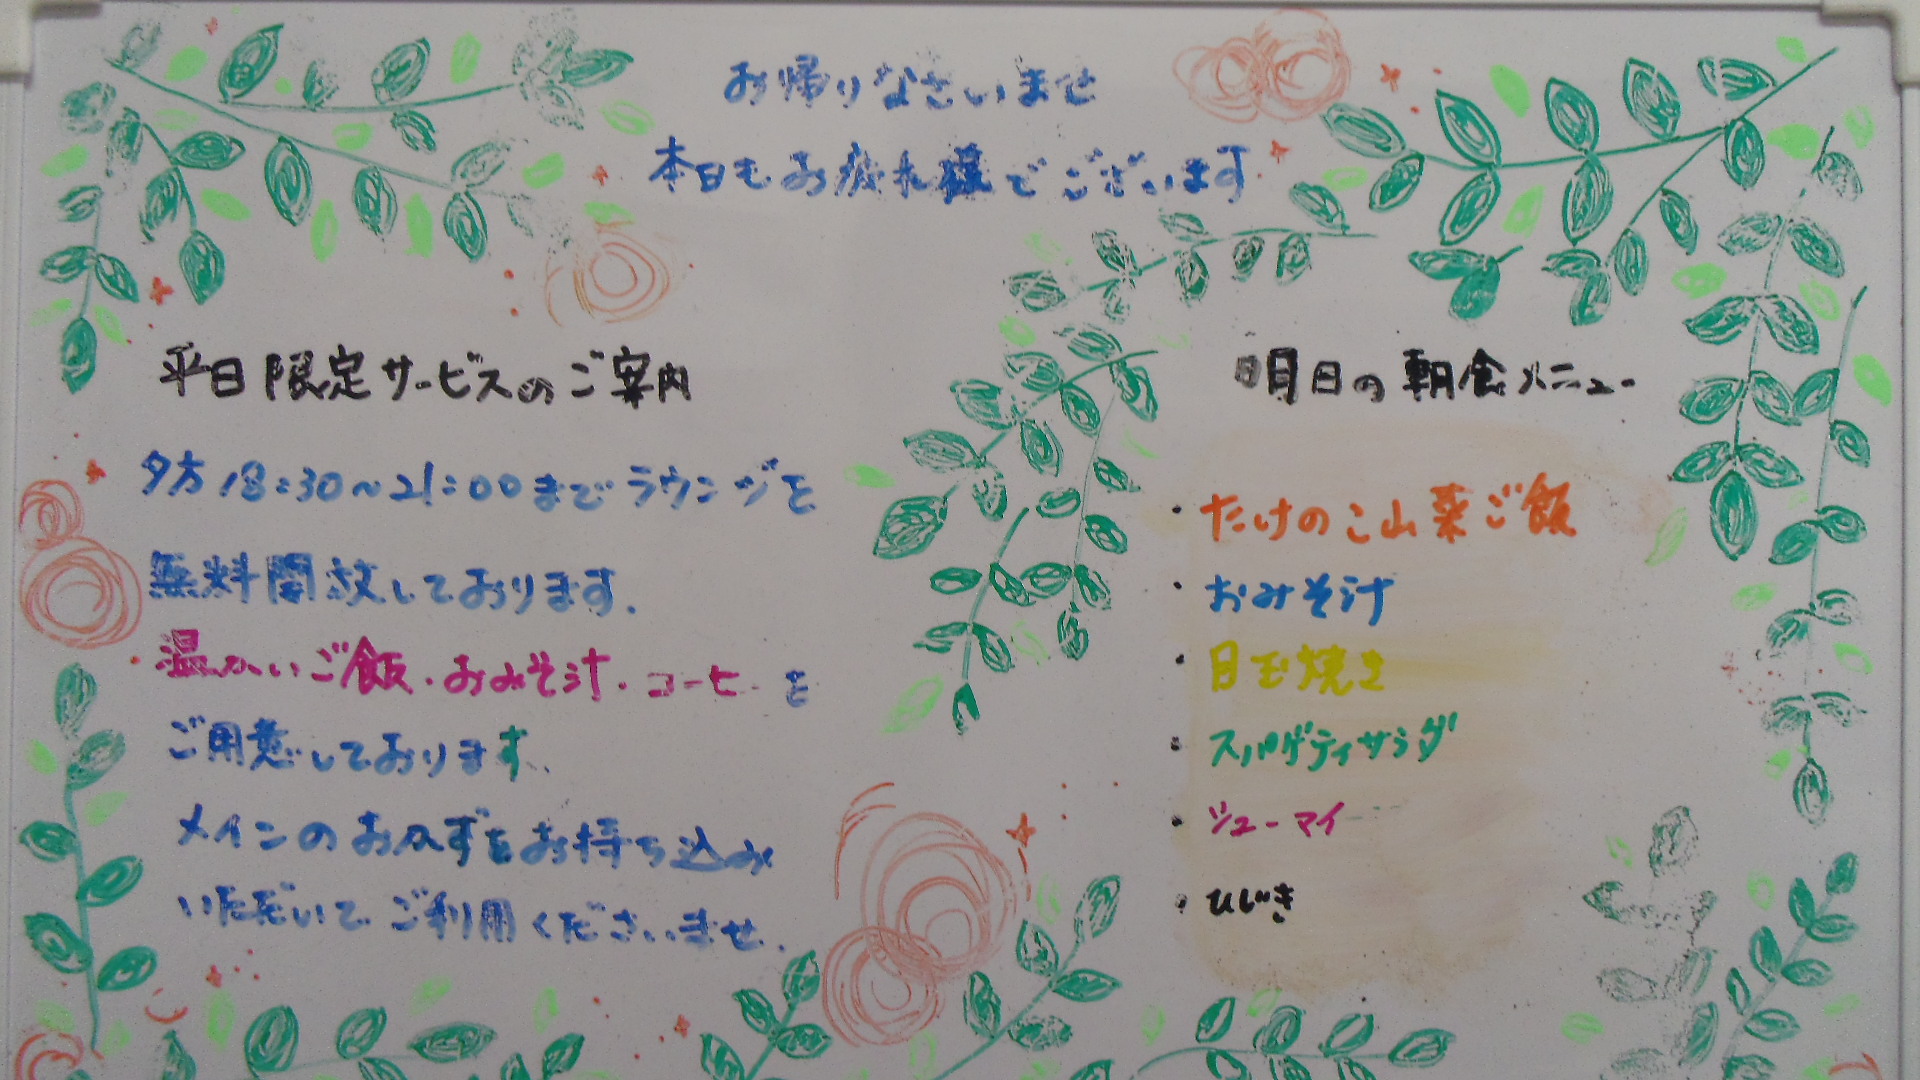 お帰りなさいませ
本日もお疲れ様でございます
平日限定サービスのご案内
夕方18:30~21:00までラウンジを
無料開放しております.
温かいご飯・おみそ汁・コーヒーを
ご用意しております、
メインのおかずをお持ち込み
いただいてご利用くださいませ.
明日の朝食メニュー
・たけのこ山菜ご飯
・おみそ汁
・目玉焼き
・スパゲティサラダ
・シューマイ
・ひじき